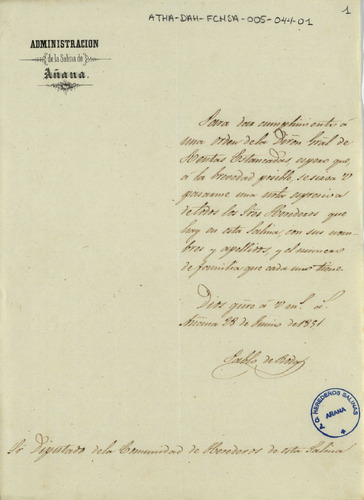 ATHA-DAH-FCNSA-005-044-01
1
ADMINISTRACION
de la Salina de
Añana.
Para dar cumplimiento á
una orden de la Diron Gral de
Rentas Estancadas, espero que,
á la brevedad posible, se sirva V
pasarme una nota espresiva
de todos los Sres Herederos que
hay en esta Salina, con sus nom-
bres y apellidos, y el número
de familia que cada uno tiene.
Dios gue á V ms. as.
Añana 28 de Junio de 1851.
Pablo de
A.G. HEREDEROS SALINAS
AÑANA
Sr Diputado de la Comunidad de Herederos de esta Salina